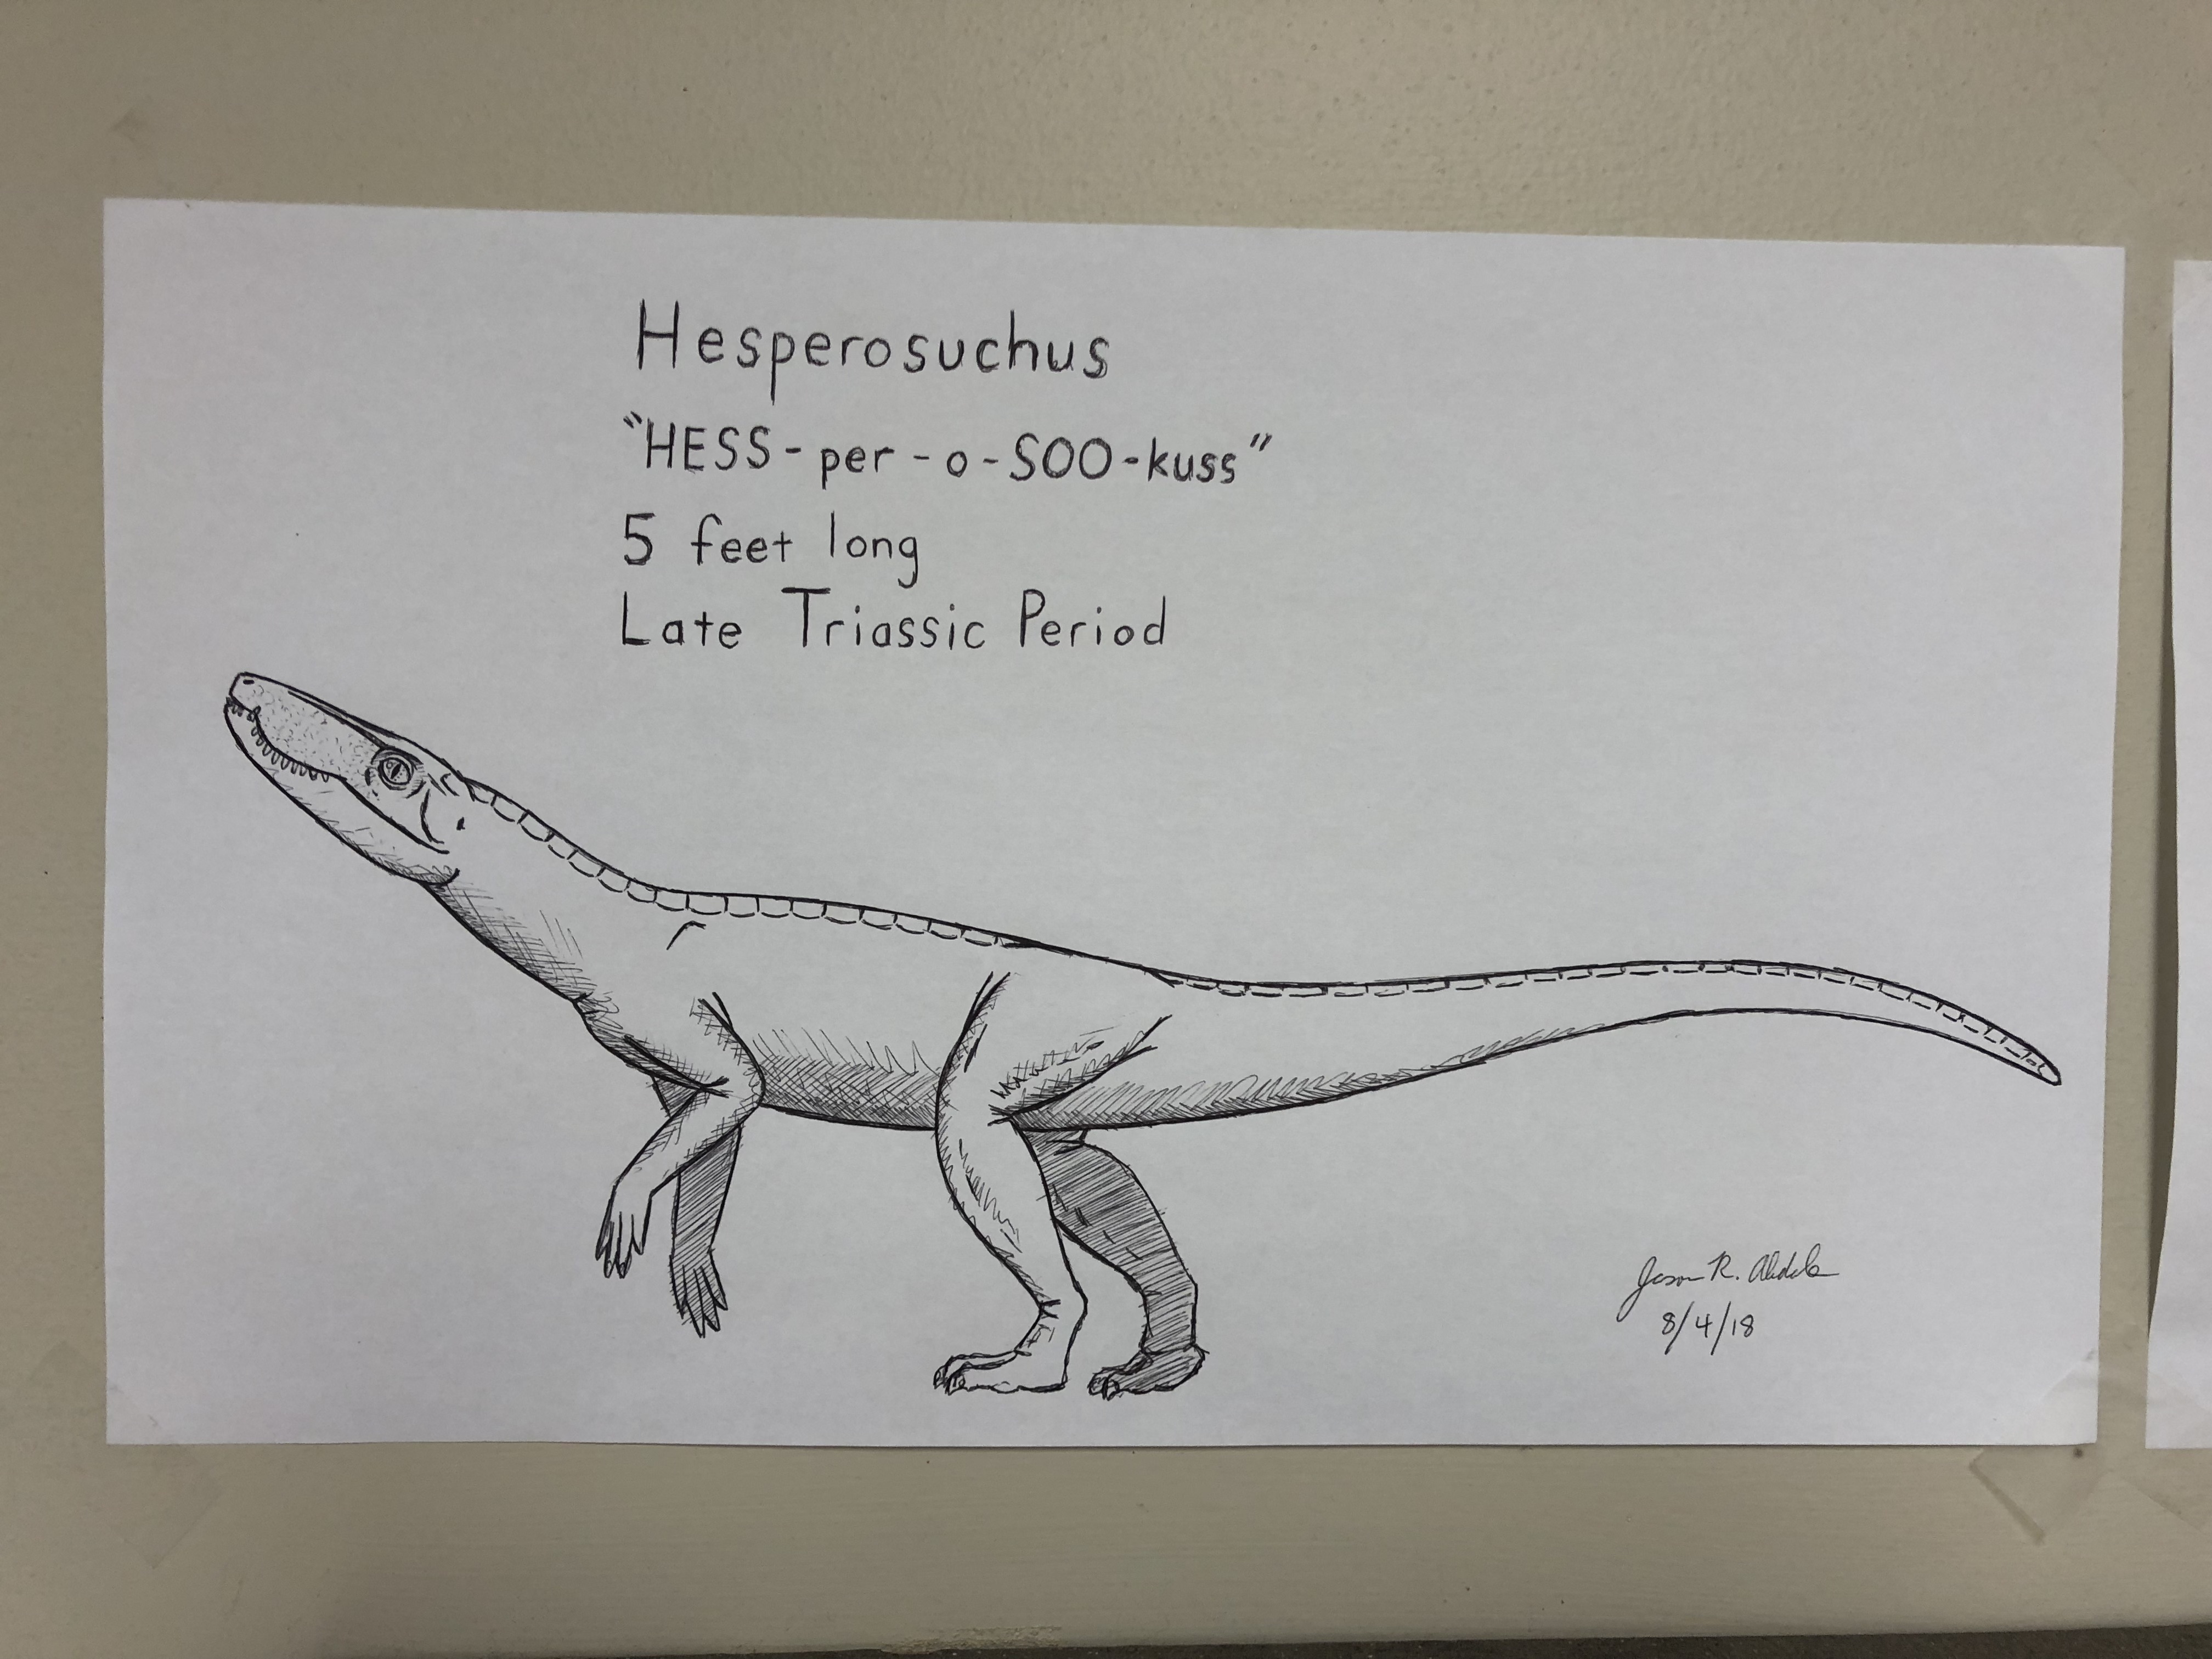 Hesperosuchus
"HESS-per-o-SOO-kuss"
5 feet long
Late Triassic Period
Jason R.
8/4/18